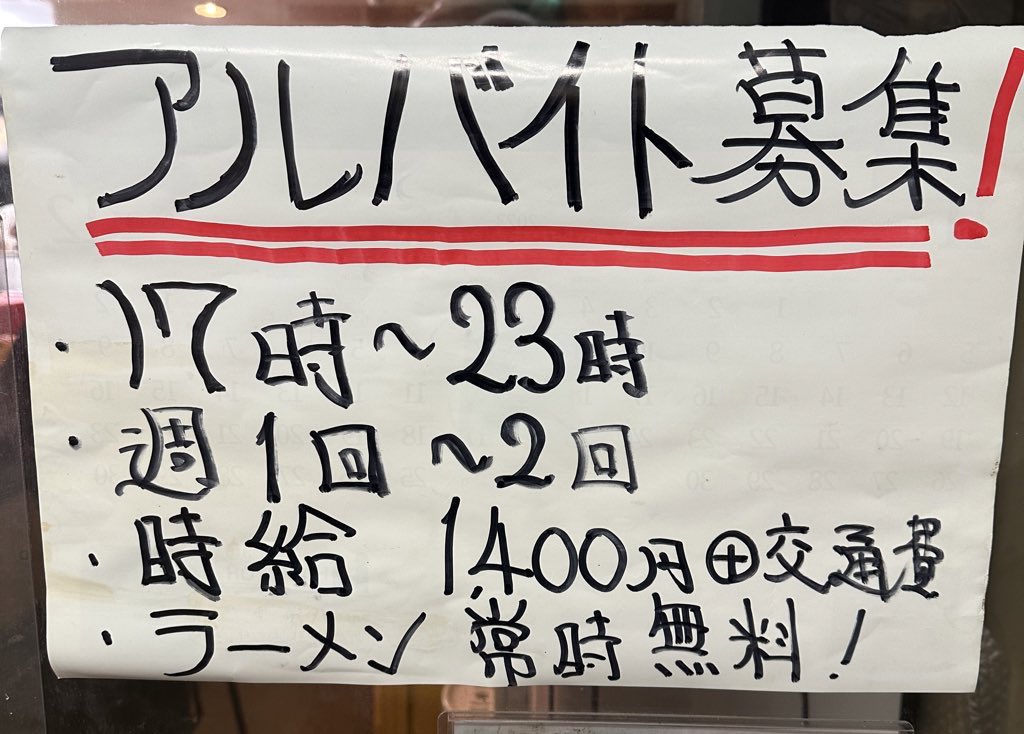 アルバイト募集!
・17時～23時
・週1回～2回
・時給 1400円⊕交通費
・ラーメン常時無料!